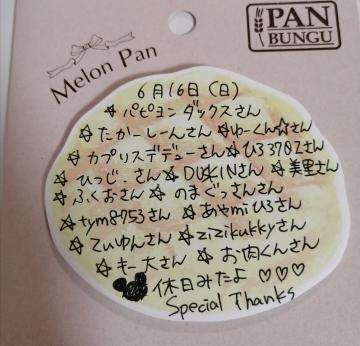 Melon Pan
PAN
BUNGU
6月16日(日)
☆パピヨンダックスさん
☆たかーしーんさん☆ゆーくん☆さん
☆カプリスデデューさん☆ひろ3702さん
☆ひつじ。さん☆DUKINさん☆美里さん
☆ふくおさん☆のまぐっさんさん
☆tym8753さん☆あやmiひろさん
☆てぃゆんさん☆zizikukkyさん
☆キー大さん☆お肉くんさん
休日みたよ♡♡♡
Special Thanks